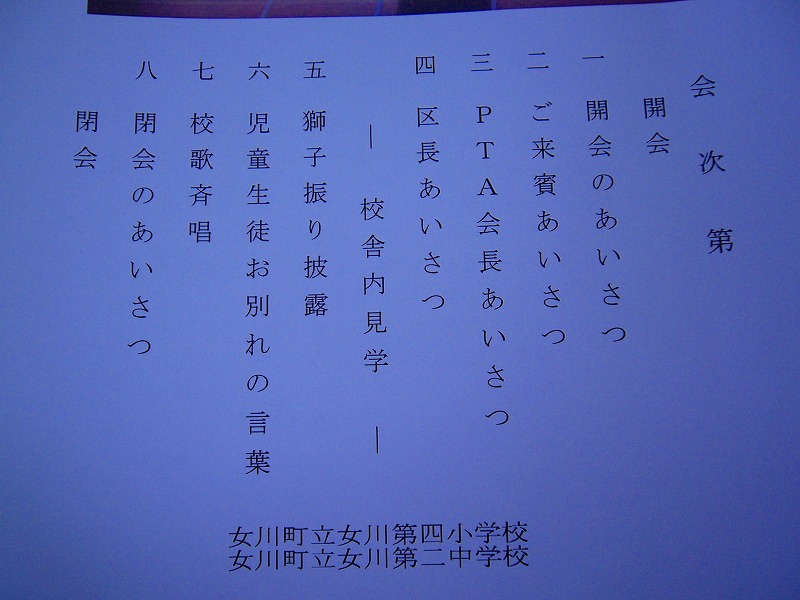 会次第
開会
一 開会のあいさつ
二 ご来賓あいさつ
三 PTA会長あいさつ
四 区長あいさつ
― 校舎内見学 ―
五 獅子振り披露
六 児童生徒お別れの言葉
七 校歌斉唱
八 閉会のあいさつ
閉会
女川町立女川第四小学校
女川町立女川第二中学校